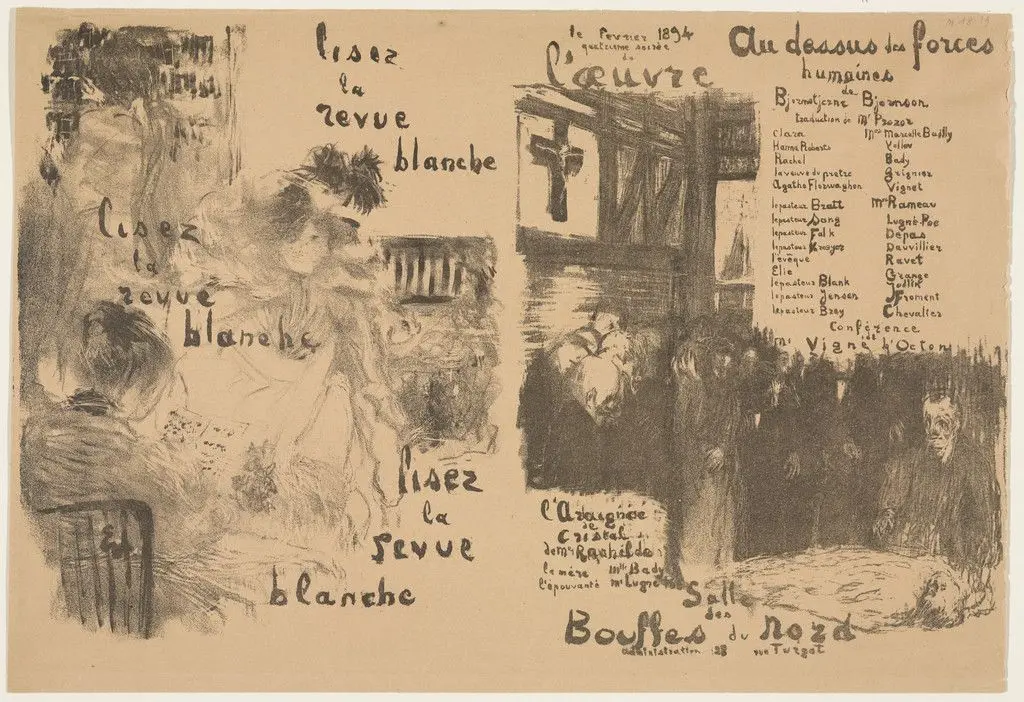 lisez
la
revue
blanche
lisez
la
revue
blanche
lisez
la
revue
blanche
le fevrier 1894
quatrieme soirée
de
l'œuvre
Au dessus des forces
humaines
de
Bjornstjerne Bjornson
traduction de Mr Prozor
Clara Mme Marcelle Bailly
Hanna Roberts
Rachel Bady
la veuve du pretre Grignier
Agathe Vignet
le pasteur Bratt Mr Rameau
le pasteur Sang Lugné-Poe
le pasteur Falk Depas
le pasteur Kroyer Dauvillier
l'évêque Ravet
Elie Grange
le pasteur Blank
le pasteur Jensen Froment
le pasteur Brey Chevalier
Conférence
de
Mr Vigné d'Octon
l'Araignée
de
Cristal
de Me Rachilde
la mère Mlle Bady
l'épouvanté Mr Lugné
Salle
des
Bouffes du Nord
administration 23 rue Turgot